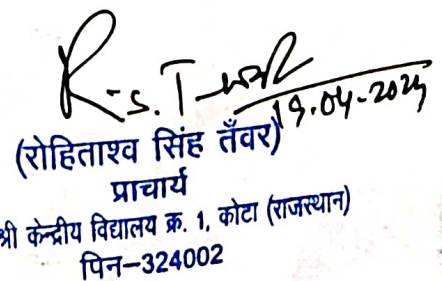 R.S. T
19.04-2024
(रोहिताश्व सिंह तँवर)
प्राचार्य
श्री केन्द्रीय विद्यालय क्र. 1, कोटा (राजस्थान)
पिन–324002